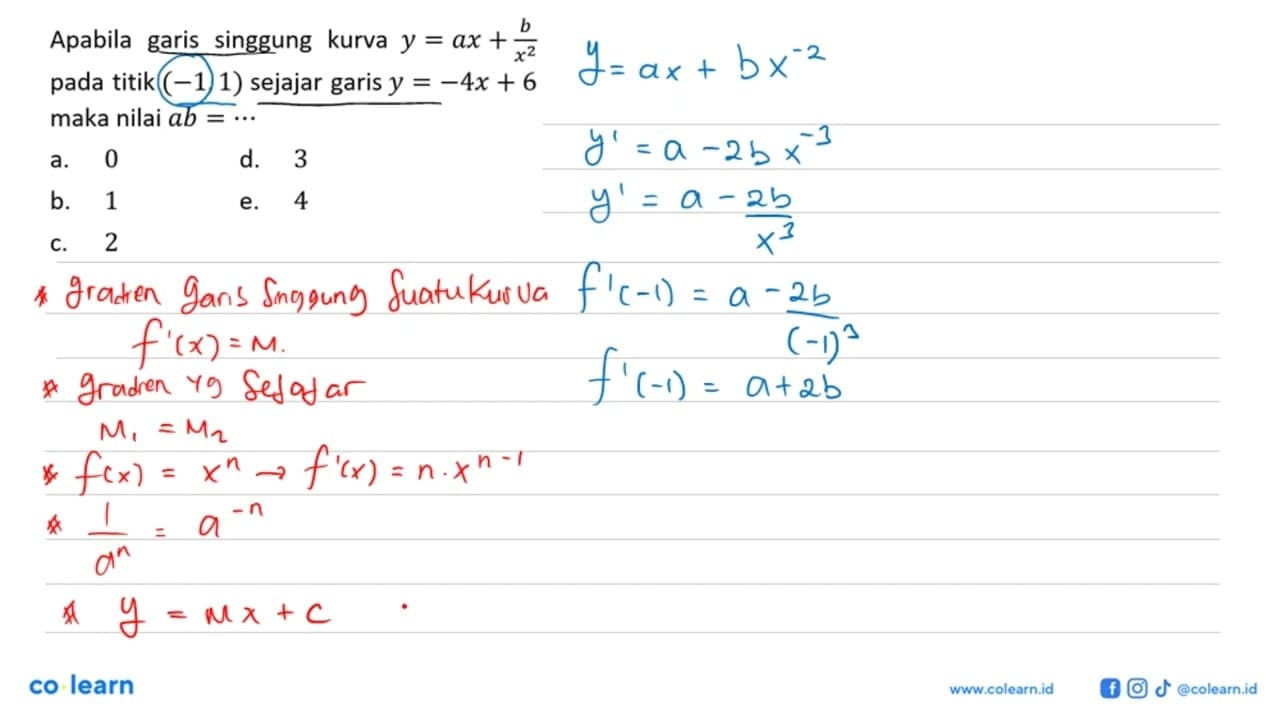 Apabila garis singgung kurva y = ax + b/x²
pada titik (−1, 1) sejajar garis y = −4x + 6
maka nilai ab = ⋯
a. 0 d. 3
b. 1 e. 4
c. 2
y = ax + bx⁻²
y' = a − 2bx⁻³
y' = a − 2b/x³
f'(−1) = a − 2b/(−1)³
f'(−1) = a + 2b
* gradien garis singgung suatu kurva
f'(x) = M.
* gradien yg sejajar
M₁ = M₂
* f(x) = xⁿ → f'(x) = n · xⁿ⁻¹
* 1/aⁿ = a⁻ⁿ
* y = Mx + C
co learn
www.colearn.id
@colearn.id